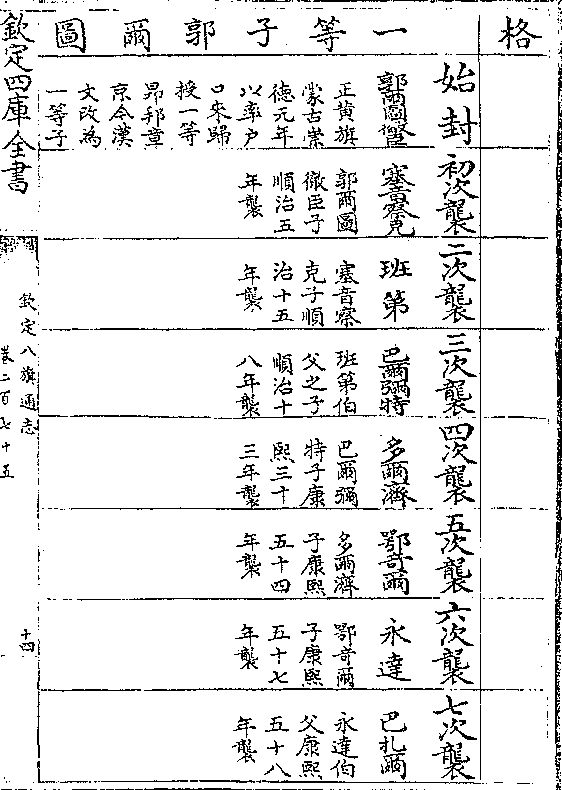 格
一等子郭爾圖
始封
郭爾圖徹臣
正黄旗
蒙古崇
德元年
以率户
口來歸
授一等
昂邦章
京今漢
文改為
一等子
初次襲
塞音察克
郭爾圖
徹臣子
順治五
年襲
二次襲
班第
塞音察
克子順
治十五
年襲
三次襲
巴爾彌特
班第伯
父之子
順治十
八年襲
四次襲
多爾濟
巴爾彌
特子康
熙三十
三年襲
五次襲
鄂奇爾
多爾濟
子康熙
五十四
年襲
六次襲
永達
鄂奇爾
子康熙
五十七
年襲
七次襲
巴札爾
永達伯
父康熙
五十八
年襲
欽定四庫全書
欽定八旗通志
卷二百七十五
十四